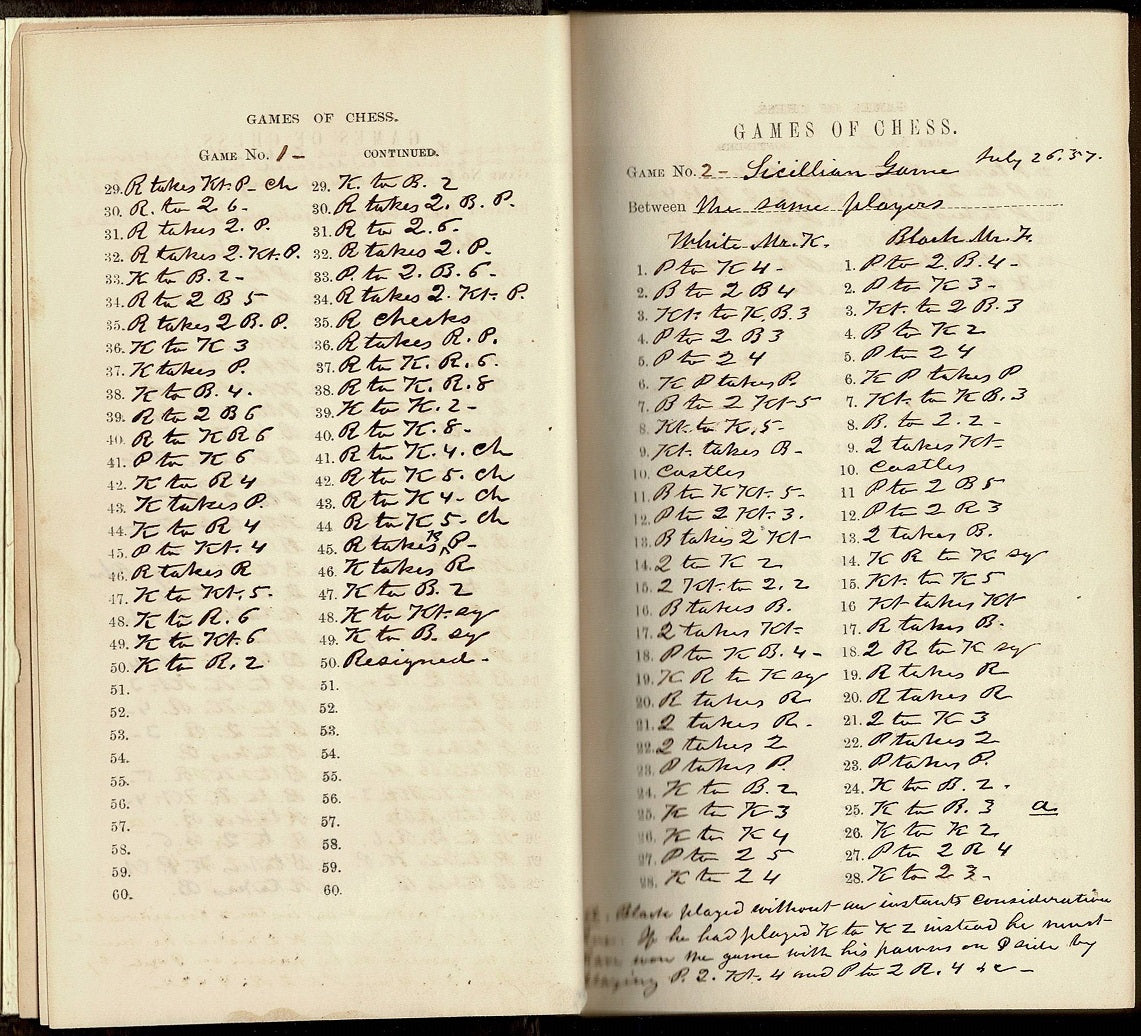 GAMES OF CHESS.
GAME No. 1- CONTINUED.
29. R takes Kt. P- ch 29. K. to B. 2
30. R. to 2 6- 30. R takes 2. B. P.
31. R takes 2. P. 31. R to 2.6-
32. R takes 2. Kt. P. 32. R takes 2. P.
33. K to B. 2- 33. P. to 2. B. 6-
34. R to 2 B 5 34. R takes 2. Kt. P.
35. R takes 2 B. P. 35. R checks
36. K to K 3 36. R takes R. P.
37. K takes P. 37. R to K. R. 6.
38. K to B. 4. 38. R to K. R. 8
39. R to 2 B 6 39. K to K. 2-
40. R to K R 6 40. R to K. 8-
41. P to K 6 41. R to K. 4. ch
42. K to R 4 42. R to K 5. ch
43. K takes P. 43. R to K 4- ch
44. K to R 4 44 R to K 5- ch
45. P to Kt. 4 45. R takes B P-
46. R takes R 46. K takes R
47. K to Kt. 5. 47. K to B. 2
48. K to R. 6 48. K to Kt. sq
49. K to Kt. 6 49. K to B. sq
50. K to R. 2 50. Resigned-
51. 51.
52. 52.
53. 53.
54. 54.
55. 55.
56. 56.
57. 57.
58. 58.
59. 59.
60. 60.
GAMES OF CHESS.
GAME No. 2- Sicillian Game July 26.57.
Between the same players
White Mr. K. Black Mr. F.
1. P to K 4- 1. P to 2. B. 4-
2. B to 2 B 4 2. P to K 3-
3. Kt. to K. B. 3 3. Kt. to 2 B. 3
4. P to 2 B 3 4. B to K 2
5. P to 2 4 5. P to 2 4
6. K P takes P. 6. K P takes P
7. B to 2 Kt 5 7. Kt. to K B. 3
8. Kt. to K. 5- 8. B. to 2. 2-
9. Kt. takes B- 9. 2 takes Kt-
10. Castles 10. Castles
11. B to K Kt. 5- 11 P to 2 B 5
12. P to 2 Kt. 3. 12. P to 2 R 3
13. B takes 2 Kt 13. 2 takes B.
14. 2 to K 2 14. K R to K sq
15. 2 Kt. to 2. 2 15. Kt. to K 5
16. B takes B. 16 Kt takes Kt
17. 2 takes Kt- 17. R takes B.
18. P to K B. 4- 18. 2 R to K sq
19. K R to K sq 19. R takes R
20. R takes R 20. R takes R
21. 2 takes R. 21. 2 to K 3
22. 2 takes 2 22. P takes 2
23. P takes P. 23. P takes P.
24. K to B. 2 24. K to B. 2.
25. K to K 3 25. K to B. 3 a
26. K to K 4 26. K to K 2
27. P to 2 5 27. P to 2 R 4
28. K to 2 4 28. K to 2 3-
Black played without an instants consideration
If he had played K to K 2 instead he must
have won the game with his pawns on Q side by
playing P. 2. Kt. 4 and P to 2 R. 4 &c-